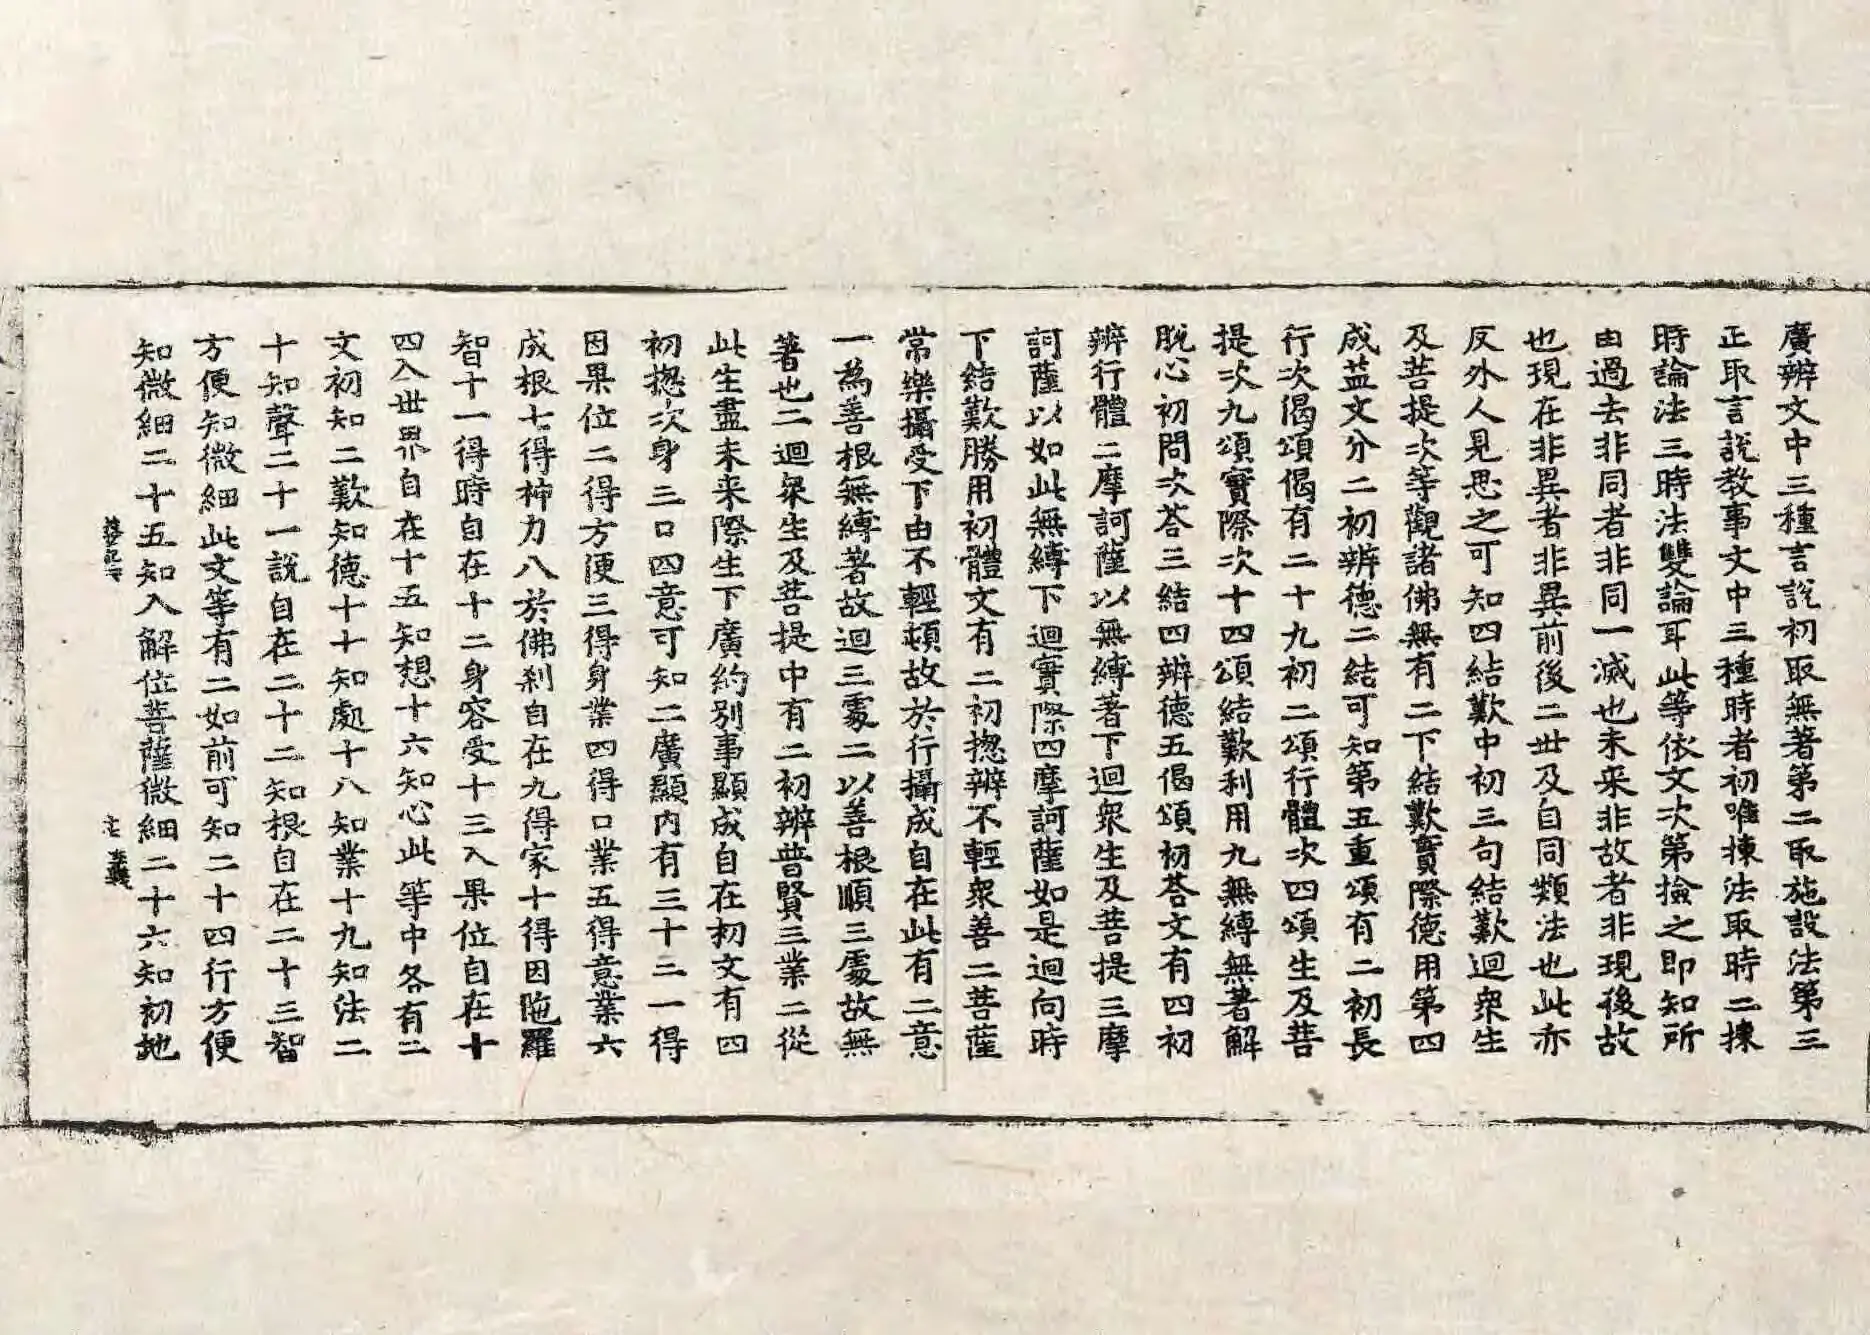 廣辨文中三種言説初取無著第二取施設法第三
正取言説教事文中三種時者初唯揀法取時二揀
時論法三時法雙論耳此等依文次第撿之即知所
由過去非同者非同一滅也未来非故者非現後故
也現在非異者非異前後二世及自同類法也此亦
反外人見思之可知四結歎中初三句結歎迴衆生
及菩提次等觀諸佛無有二下結歎實際德用第四
成益文分二初辨德二結可知第五重頌有二初長
行次偈頌偈有二十九初二頌行體次四頌生及菩
提次九頌實際次十四頌結歎利用九無縛無著解
脱心初問次荅三結四辨德五偈頌初荅文有四初
辨行體二摩訶薩以無縛著下迴衆生及菩提三摩
訶薩以如此無縛下迴實際四摩訶薩如是迴向時
下結歎勝用初體文有二初揔辨不輕衆善二菩薩
常樂攝受下由不輕頓故於行攝成自在此有二意
一為善根無縛著故迴三處二以善根順三處故無
著也二迴衆生及菩提中有二初辨普賢三業二從
此生盡未来際生下廣約別事顯成自在初文有四
初揔次身三口四意可知二廣顯内有三十三一得
因果位二得方便三得身業四得口業五得意業六
成根七得神力八於佛刹自在九得家十得因陁羅
智十一得時自在十二身容受十三入果位自在十
四入世界自在十五知想十六知心此等中各有二
文初知二歎知德十十知處十八知業十九知法二
十知聲二十一説自在二十二知根自在二十三智
方便知微細此文等有二如前可知二十四行方便
知微細二十五知入解位菩薩微細二十六知初地